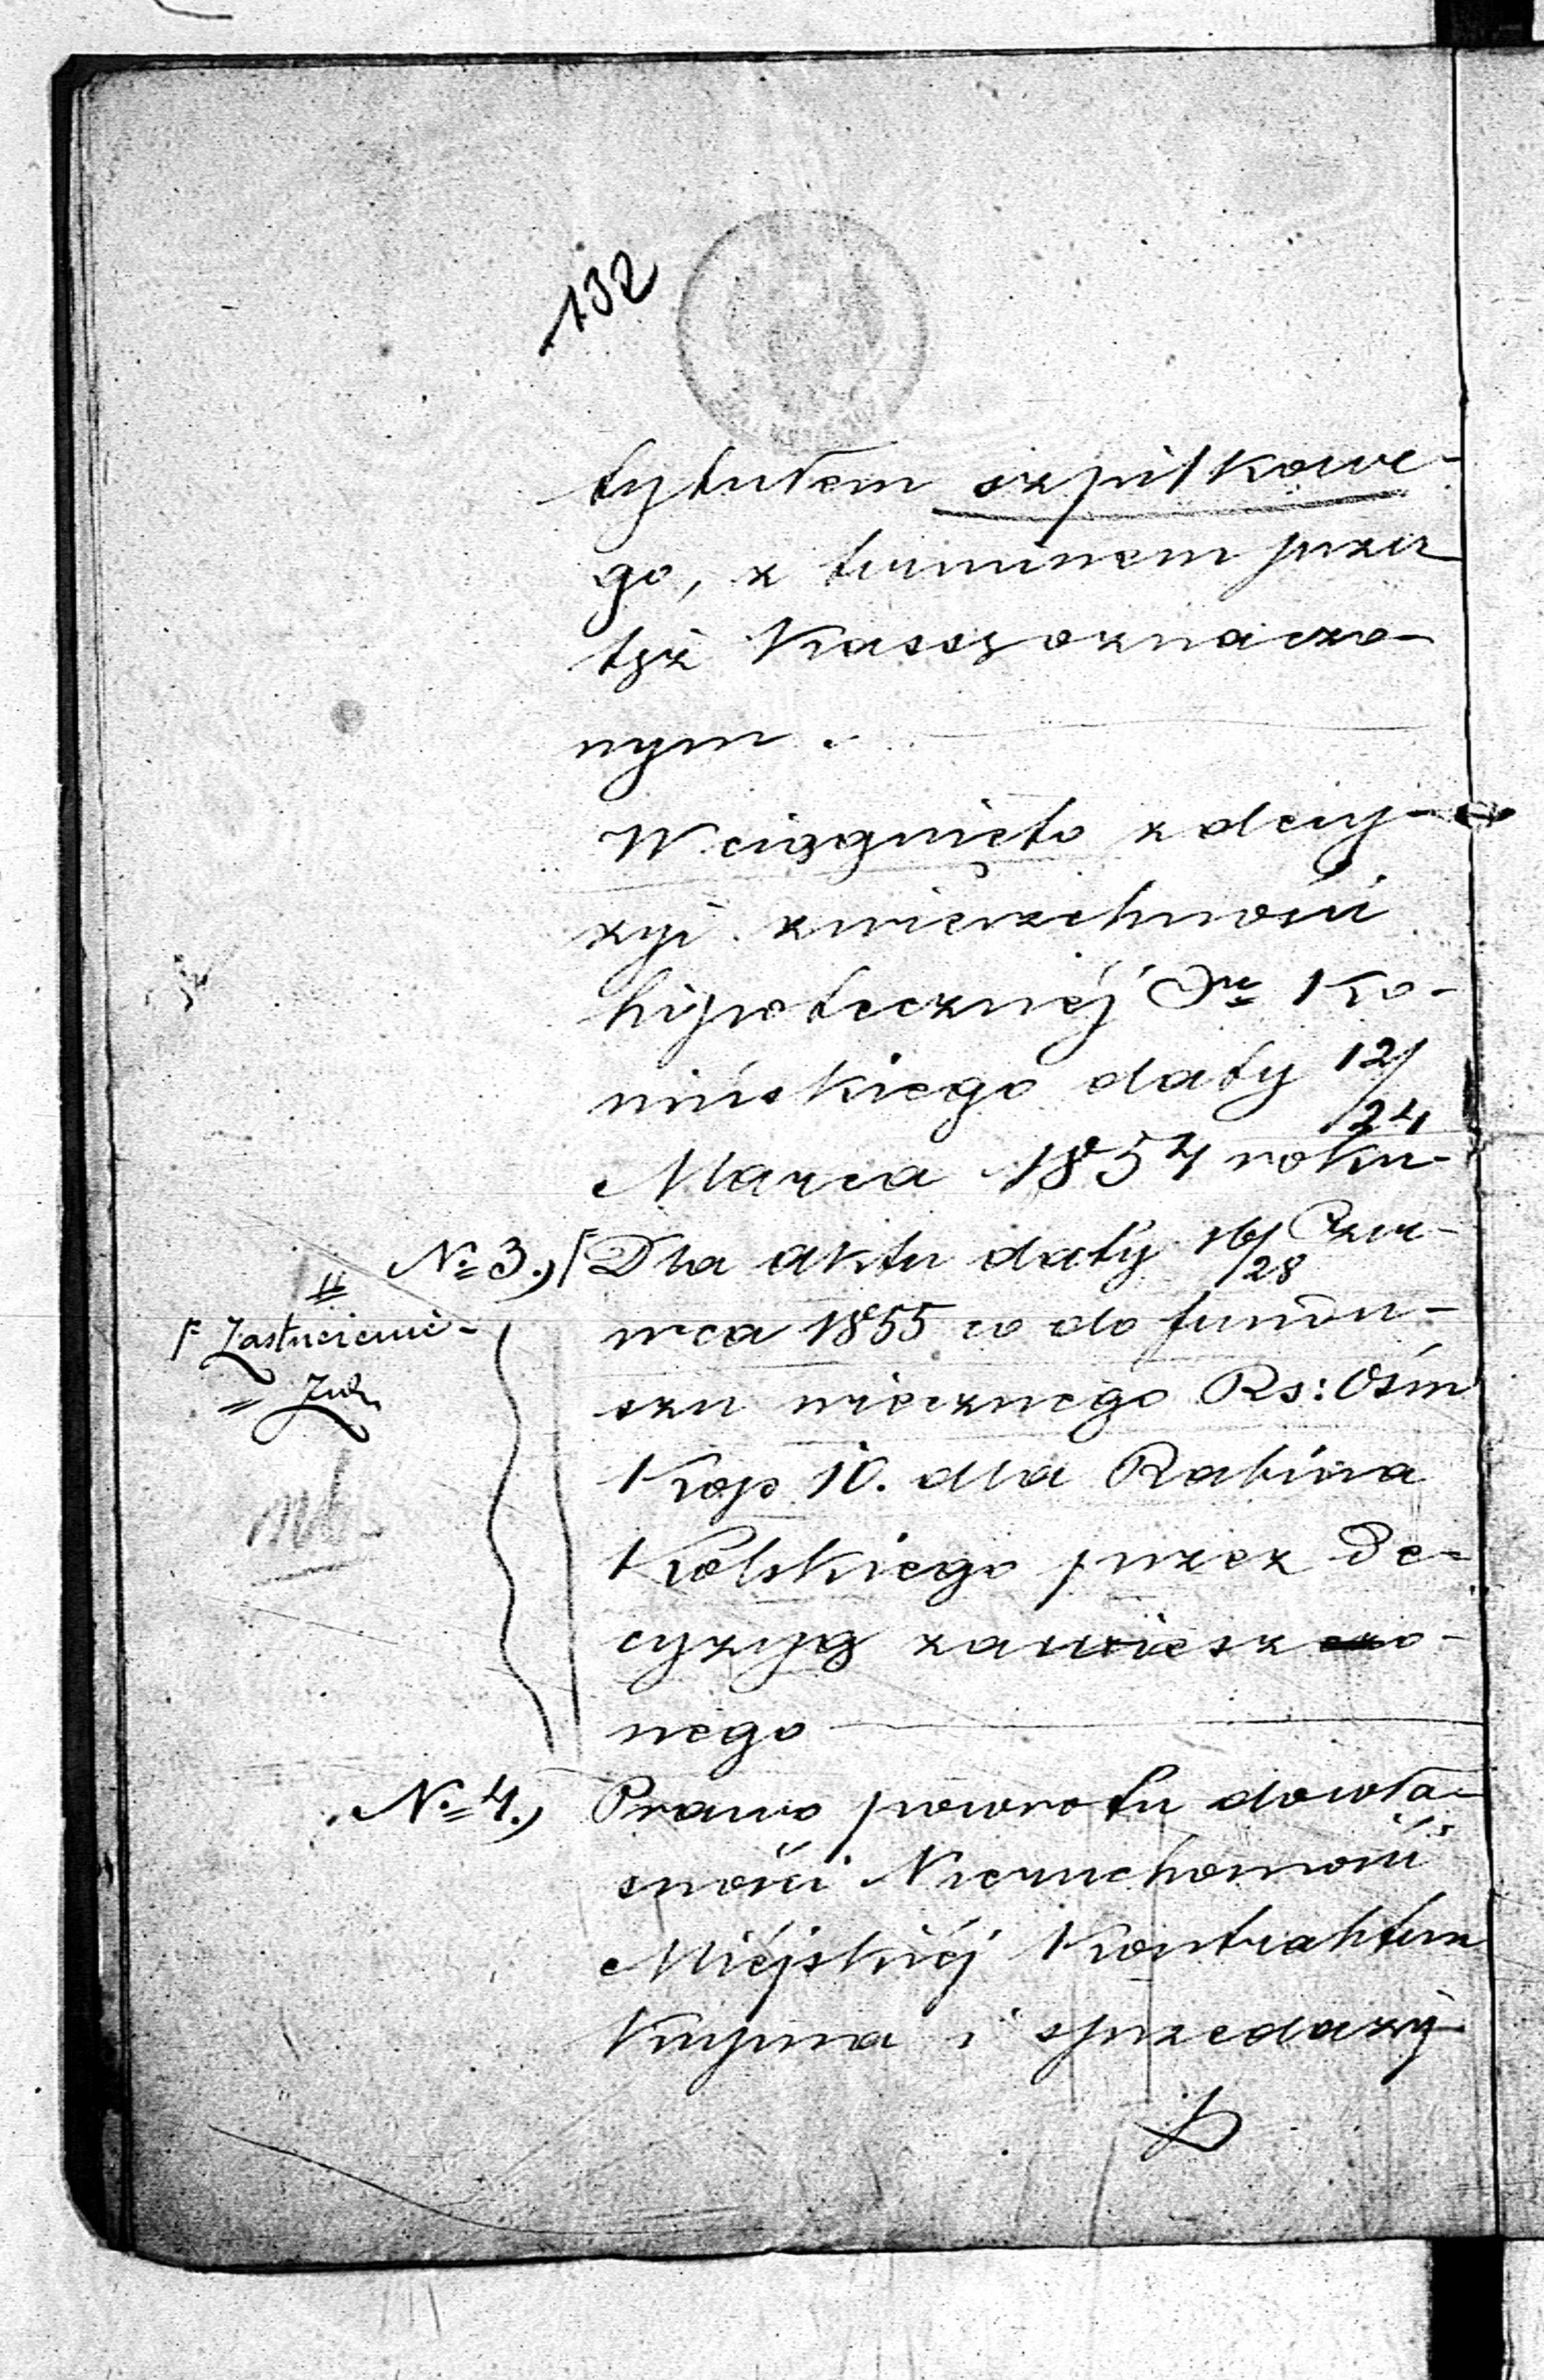 132
tytułem szpilkowe-
go, z terminem przez
tęż Kassę oznaczo-
nym.
Wciągnięto z decy-
zyi zwierzchności
hipotecznéj Ou Ko-
nińskiego daty 12/24
Marca 1854 roku
No 3.) Dla aktu daty 16/28 Czer-
wca 1855 co do fundu-
szu wiecznego Rs: Ośm
Kop 10. dla Rabina
Kolskiego przez De-
cyzyę zawieszo-
nego
No 4.) Prawo powrotu dowła-
sności Nieruchomości
Miéjskiéj Kontraktem
Kupna i sprzedaży